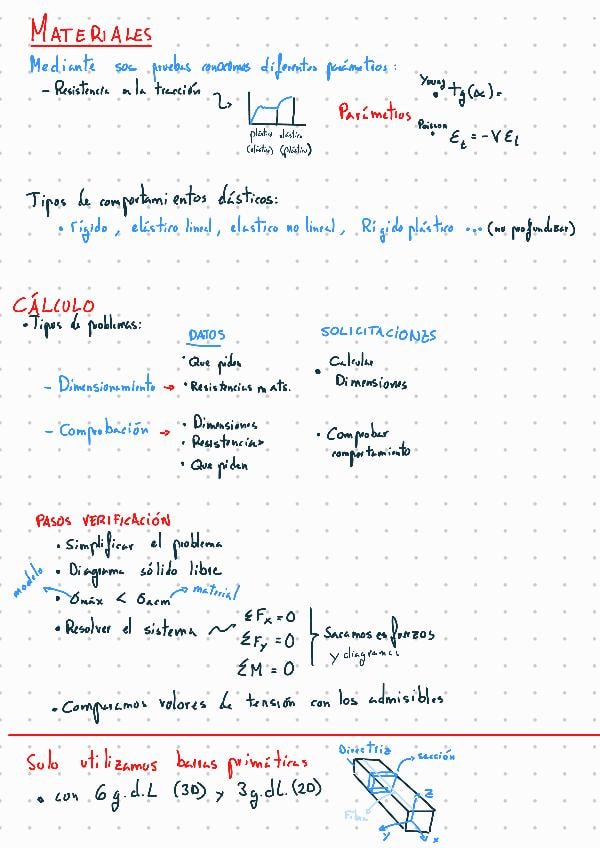 MATERIALES
Mediante sus pruebas conocemos diferentes parámetros:
- Resistencia a la tracción
plástico elástico
(elástico) (plástico)
Parámetros
Young
• tg(α) =
Poisson
• Ɛt = -VƐl
Tipos de comportamientos elásticos:
• rígido, elástico lineal, elastico no lineal, Rígido plástico ... (no profundizar)
CÁLCULO
• Tipos de problemas:
DATOS
SOLICITACIONES
- Dimensionamiento →
• Que piden
• Resistencias mats.
• Calcular
Dimensiones
- Comprobación →
• Dimensiones
• Resistencias
• Que piden
• Comprobar
comportamiento
PASOS VERIFICACIÓN
• Simplificar el problema
• Diagrama sólido libre
modelo
• σmáx < σadm
material
• Resolver el sistema
ΣFx = 0
ΣFy = 0
ΣM = 0
Sacamos esfuerzos
y diagramas
• Comparamos valores de tensión con los admisibles
Solo utilizamos barras primáticas
• con 6 g.d.L (3D) y 3g.dL.(2D)
Directriz
sección
Fibra
z
y
x